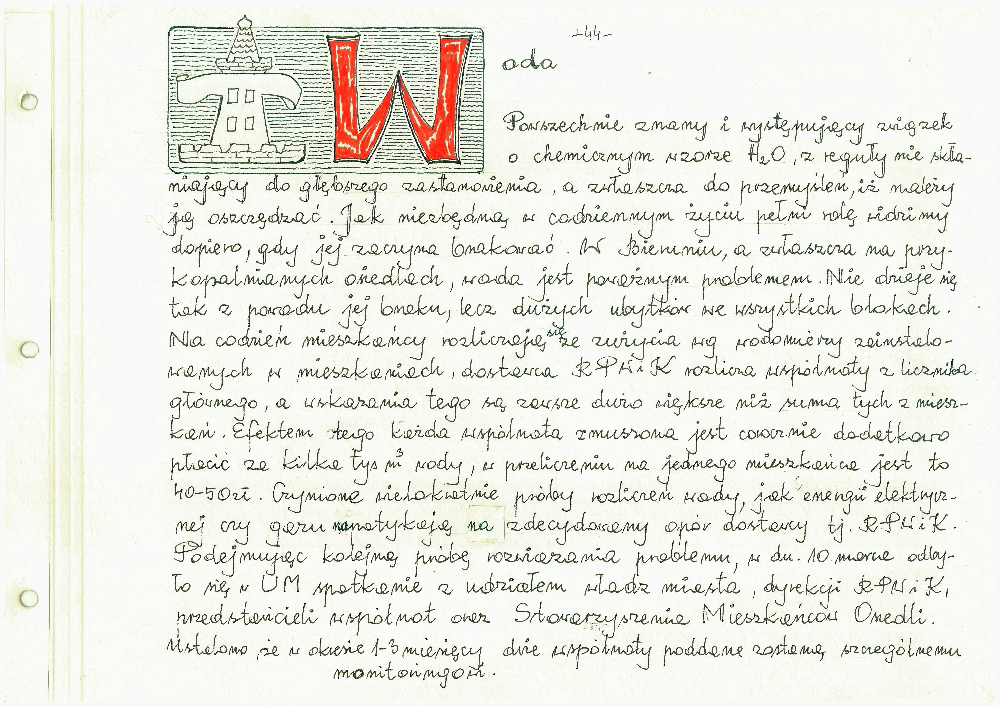 -44-
Woda
Powszechnie znany i występujący związek
o chemicznym wzorze H₂O, z reguły nie skła-
niający do głębszego zastanowienia, a zwłaszcza do przemyśleń, iż należy
ją oszczędzać. Jak niezbędną w codziennym życiu pełni rolę widzimy
dopiero, gdy jej zaczyna brakować. W Bieruniu, a zwłaszcza na przy-
kopalnianych osiedlach, woda jest poważnym problemem. Nie dzieje się
tak z powodu jej braku, lecz dużych ubytków we wszystkich blokach.
Na codzień mieszkańcy rozliczają się ze zużycia wg wodomierzy zainstalo-
wanych w mieszkaniach, dostawca RPWiK rozlicza wspólnoty z licznika
głównego, a wskazania tego są zawsze dużo większe niż suma tych z miesz-
kań. Efektem tego każda wspólnota zmuszona jest corocznie dodatkowo
płacić za kilka tys m³ wody, w przeliczeniu na jednego mieszkańca jest to
40-50zł. Czynione niejednokrotnie próby rozliczeń wody, jak energii elektrycz-
nej czy gazu natykają na zdecydowany opór dostawcy tj. RPWiK.
Podejmując kolejną próbę rozwiązania problemu, w dn. 10 marca odby-
ło się w UM spotkanie z udziałem władz miasta, dyrekcji RPWiK,
przedstawicieli wspólnot oraz Stowarzyszenia Mieszkańców Osiedli.
Ustalono, że w okresie 1-3 miesięcy dwie wspólnoty poddane zostaną szczególnemu
monitoringowi.